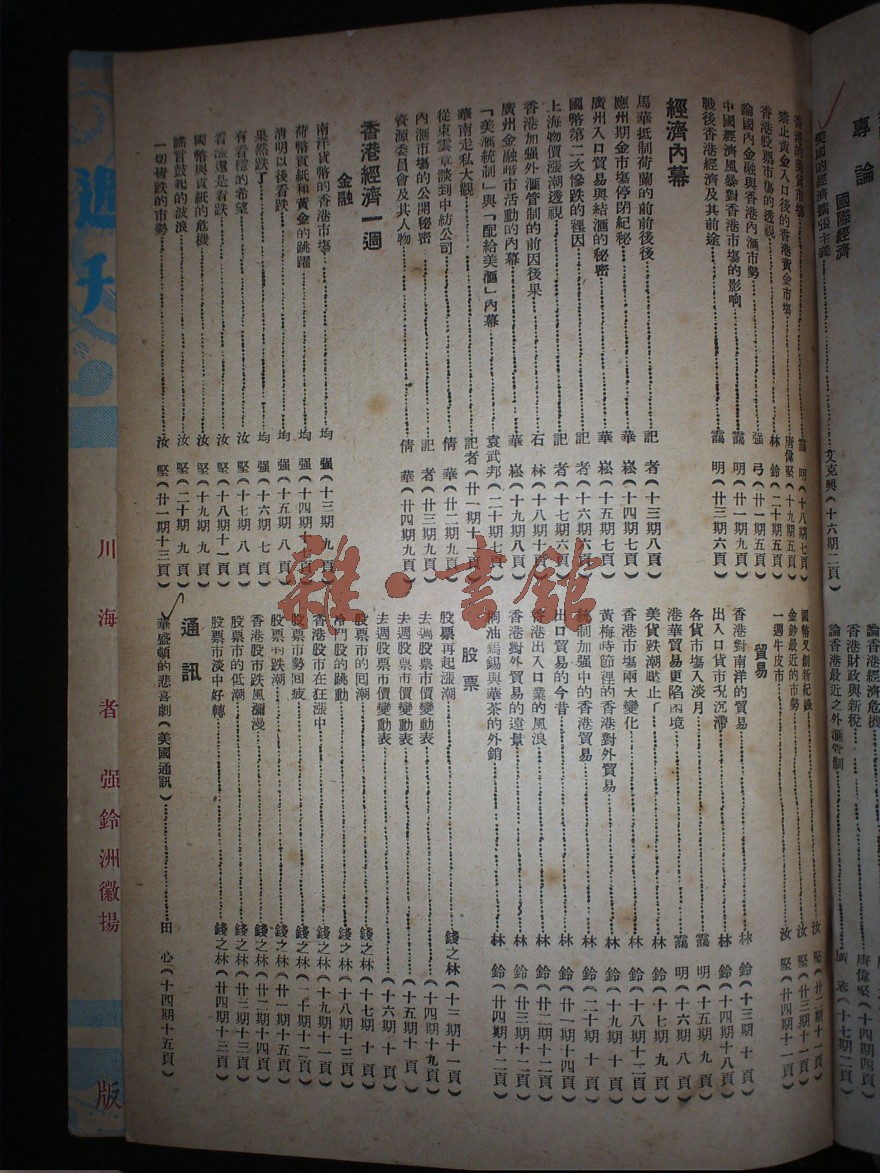 專論
國際經濟
美國的經濟擴張主義⋯⋯艾克奧(十六期二頁)
論香港經濟危機
香港財政與新稅⋯⋯唐偉堅(十四期四頁)
論香港最近之外滙管制⋯⋯(十七期二頁)
香港股票市場的透視⋯⋯林鈴(二十期五頁)
禁止黃金入口後的香港黃金市場⋯⋯唐偉堅(十九期五頁)
論國內金融與香港內滙市勢⋯⋯强弓(廿一期五頁)
中國經濟風暴對香港市場的影响⋯⋯靄明(廿一期九頁)
戰後香港經濟及其前途⋯⋯靄明(廿三期六頁)
經濟內幕
馬華抵制荷蘭的前前後後⋯⋯記者(十三期八頁)
應州期金市塲停閉紀秘⋯⋯華崧(十四期七頁)
廣州入口貿易與結滙的秘密⋯⋯華崧(十五期七頁)
國幣第二次慘跌的裡因⋯⋯記者(十六期六頁)
上海物價漲潮透視⋯⋯記者(十七期六頁)
香港加强外滙管制的前因後果⋯⋯石林(十八期十頁)
廣州金融暗市活動的內幕⋯⋯華崧(十九期八頁)
「美滙統制」與「配給美滙」內幕⋯⋯袁武邦(二十期七頁)
華南走私大觀⋯⋯記者(廿一期十一頁)
從東雲章談到中紡公司⋯⋯倩華(廿二期九頁)
內滙市塲的公開秘密⋯⋯記者(廿三期九頁)
資源委員會及其人物⋯⋯倩華(廿四期九頁)
香港經濟一週
金融
南洋貨幣的香港市塲⋯⋯均强(十三期九頁)
荷幣貢紙和黃金的跳躍⋯⋯均强(十四期八頁)
清明以後看跌⋯⋯均强(十五期八頁)
果然跌了⋯⋯均强(十六期七頁)
有看穩的希望⋯⋯汝堅(十七期八頁)
看漲還是看跌⋯⋯汝堅(十八期十一頁)
國幣與貢紙的危機⋯⋯汝堅(十九期九頁)
謠言鼓起的波浪⋯⋯汝堅(二十期九頁)
一切皆跌的市勢⋯⋯汝堅(廿一期十三頁)
國幣又創新紀錄⋯⋯汝堅(廿二期十一頁)
金鈔最近的市勢⋯⋯汝堅(廿三期十一頁)
一週牛皮市⋯⋯汝堅(廿四期十一頁)
貿易
香港對南洋的貿易⋯⋯林鈴(十三期十頁)
出入口貨市况沉滯⋯⋯林鈴(十四期十八頁)
各貨市塲入淡月⋯⋯靄明(十五期九頁)
港華貿易更陷困境⋯⋯靄明(十六期八頁)
美貨跌潮壓止了⋯⋯林鈴(十七期九頁)
香港市塲兩大變化⋯⋯林鈴(十八期十二頁)
黃梅時節裡的香港對外貿易⋯⋯林鈴(十九期十頁)
統制加强中的香港貿易⋯⋯林鈴(二十期十頁)
出口貿易的今昔⋯⋯林鈴(廿一期十四頁)
香港出入口業的風浪⋯⋯林鈴(廿二期十二頁)
香港對外貿易的遠景⋯⋯林鈴(廿三期十二頁)
桐油鎢錫與華茶的外銷⋯⋯林鈴(廿四期十二頁)
股票
股票再起漲潮⋯⋯錢之林(十三期十一頁)
去週股票市價變動表⋯⋯(十四期十九頁)
去週股票市價變動表⋯⋯(十五期十頁)
去週股票市價變動表⋯⋯(十六期十頁)
股票市的囘潮⋯⋯錢之林(十七期十頁)
冷門股的跳動⋯⋯錢之林(十八期十三頁)
香港股市在狂漲中⋯⋯錢之林(十九期十一頁)
股票市勢囘疲⋯⋯錢之林(二十期十二頁)
股票市跌潮⋯⋯錢之林(廿一期十五頁)
香港股市跌風彌漫⋯⋯錢之林(廿二期十四頁)
股票市的低潮⋯⋯錢之林(廿三期十三頁)
股票市淡中好轉⋯⋯錢之林(廿四期十三頁)
通訊
華盛頓的悲喜劇(美國通訊)⋯⋯田心(十四期十五頁)
週刊
川海者强鈴洲徽揚版
雜·書館